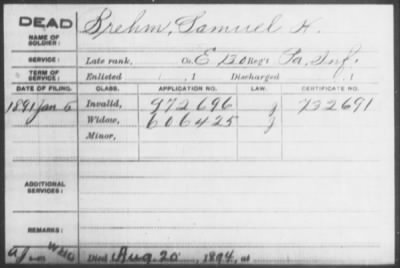 DEAD
NAME OF SOLDIER: Brehm, Samuel H.
SERVICE: Late rank, Co. E Reg't Pa. Inf.
TERM OF SERVICE: Enlisted , 1 Discharged , 1
DATE OF FILING. CLASS. APPLICATION NO. LAW. CERTIFICATE NO.
1891 Jan 5 Invalid, 972696 J 732691
Widow, 606425 J
Minor,
ADDITIONAL SERVICES:
REMARKS:
Died Aug. 20, 1894, at